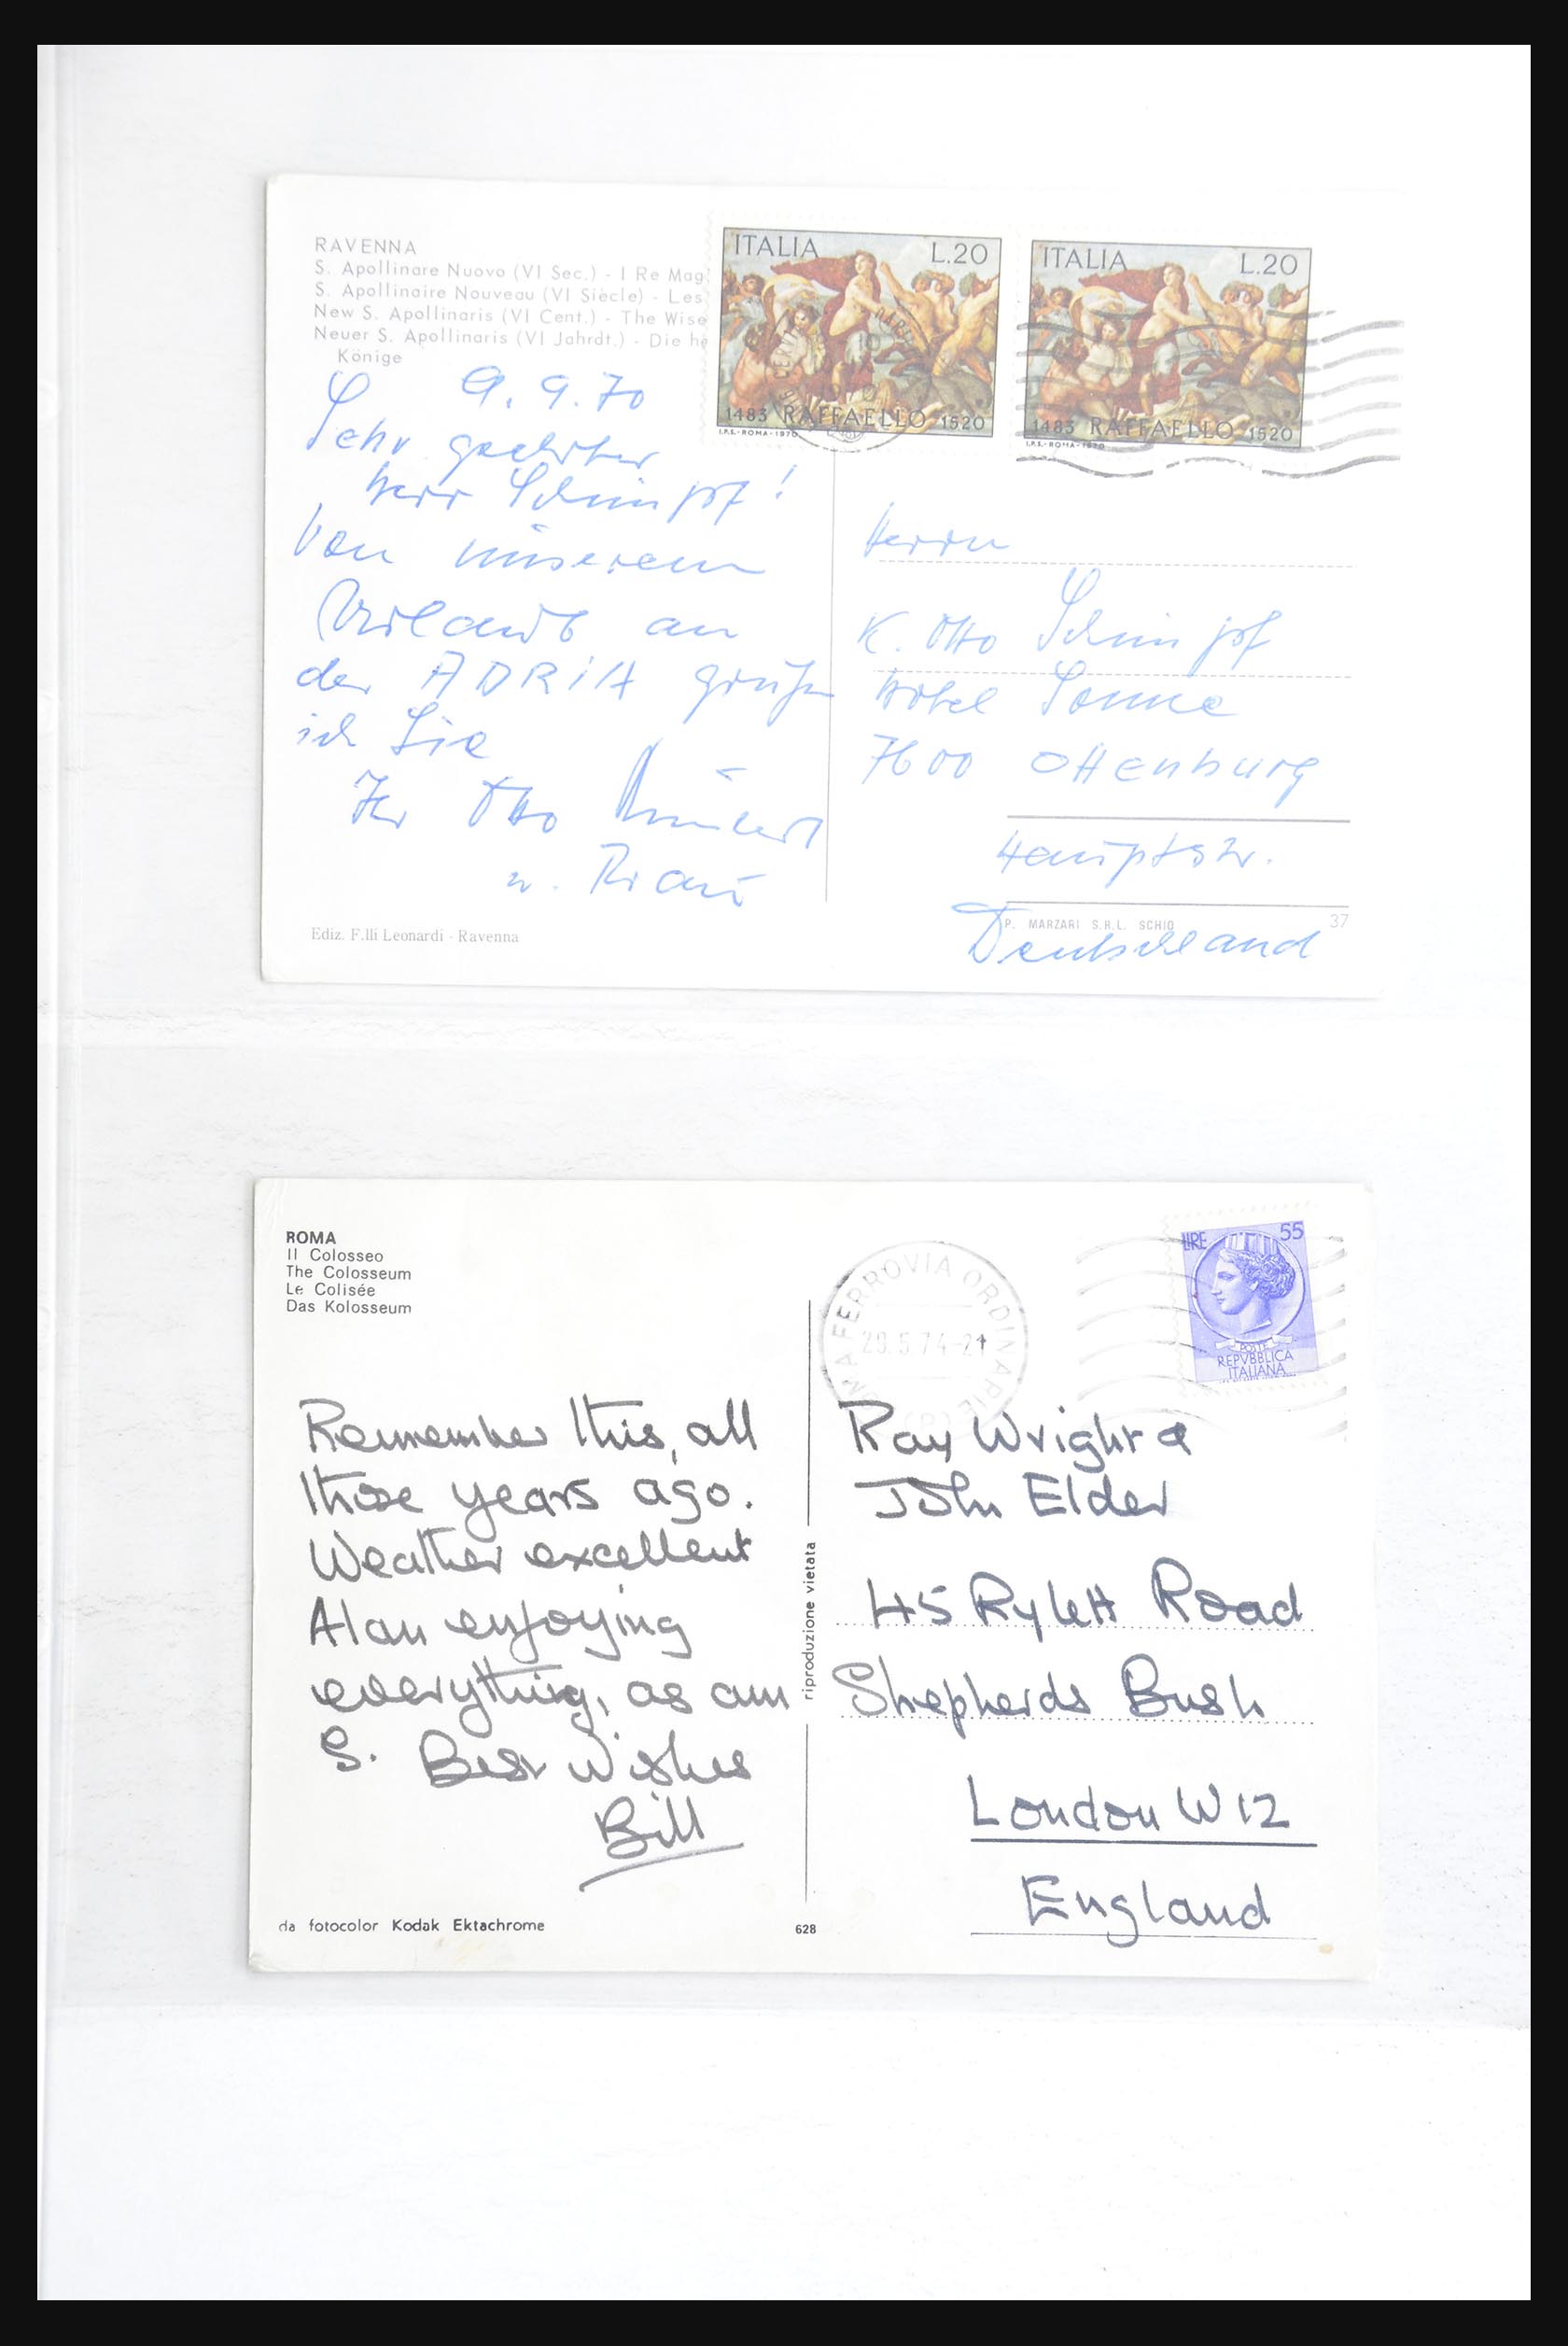 RAVENNA
S. Apollinare Nuovo (VI Sec.) - I Re Mag
S. Apollinaire Nouveau (VI Siècle) - Les
New S. Apollinaris (VI Cent.) - The Wise
Neuer S. Apollinaris (VI Jahrdt.) - Die he
Könige
ITALIA L.20
1483 RAFFAELLO 1520
I.P.S.-ROMA-1970
ITALIA L.20
1483 RAFFAELLO 1520
I.P.S.-ROMA-1970
9.9.70
Sehr geehrter
Herr Schimpf!
Von unserem
Urlaub an
der ADRIA grüße
ich Sie
Ihr Otto
u. Frau
Herrn
K. Otto Schimpf
Hotel Sonne
7600 Offenburg
Hauptstr.
Deutschland
Ediz. F.lli Leonardi - Ravenna
P. MARZARI S.R.L. SCHIO 37
ROMA
Il Colosseo
The Colosseum
Le Colisée
Das Kolosseum
MA FERROVIA ORDINARIE
29.5.74-21
LIRE 55
POSTE
REPVBBLICA
ITALIANA
Remember this, all
those years ago.
Weather excellent
Alan enjoying
everything, as am
S. Best Wishes
Bill
riproduzione vietata
Ray Wright &
John Elder
45 Rylett Road
Shepherds Bush
London W12
England
da fotocolor Kodak Ektachrome
628